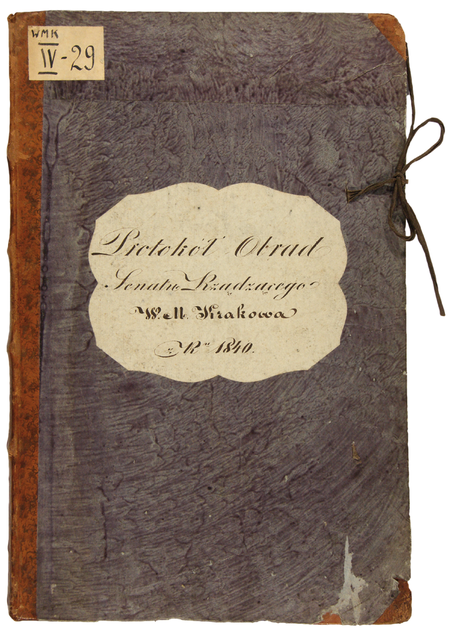 WMK
IV-29
Protokół Obrad
Senatu Rządzącego
W. M. Krakowa
R. 1840.